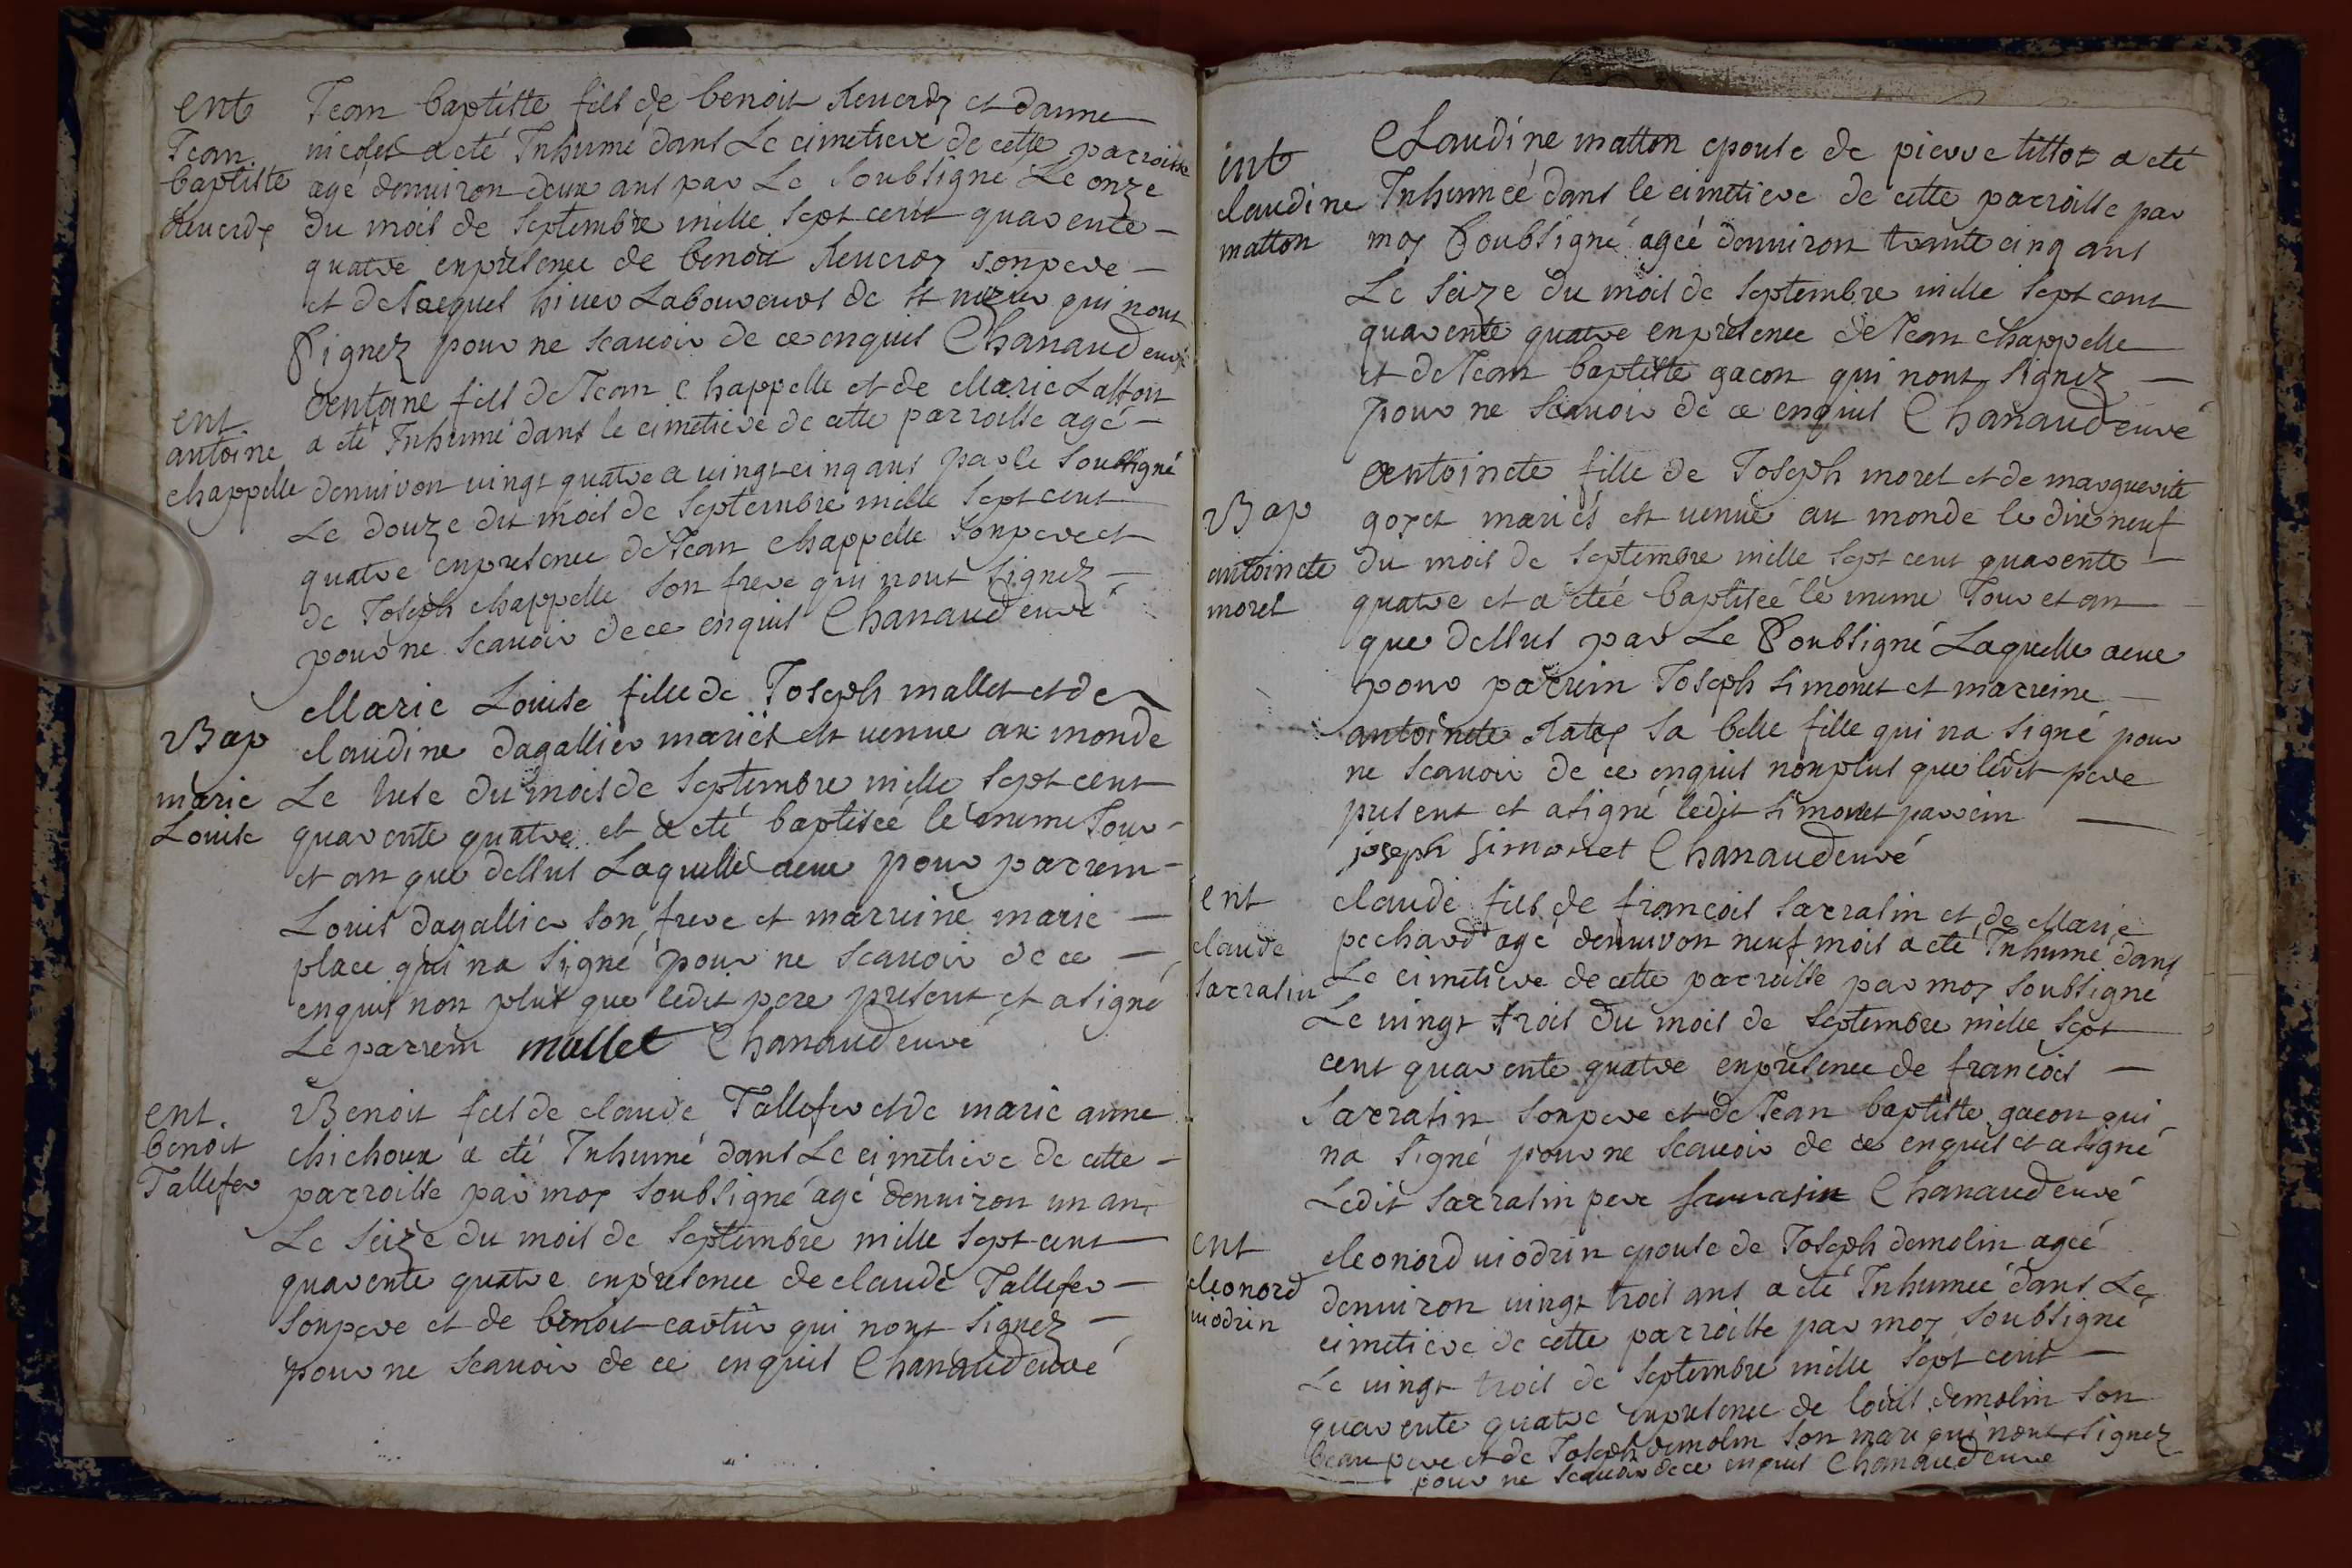 ent
Jean
baptiste
Reverdy
Jean baptiste fils de benoit Reverdy et danne
nicolet a eté Inhumé dans Le cimetiere de cette parroisse
agé denuiron deux ans par Le soubsigné Le onze
du mois de septembre mille sept cent quarente
quatre enpresence de benoit Reverdy son pere
et de Jacques hiuer Laboureurs de st nizier qui nont
signez pour ne scauoir de ce enquis Chanaud curé
ent.
antoine
chappelle
Antoine fils de Jean Chappelle et de Marie
a eté Inhumé dans le cimetiere de cette parroisse agé
denuiron vingt quatre a vingt cinq ans par le soubsigné
Le douze du mois de septembre mille sept cent
quatre enpresence de Jean chappelle son pere et
de Joseph chappelle son frere qui nont signez
pour ne scauoir de ce enquis Chanaud curé
Bap
marie
Louise
Marie Louise fille de Joseph mallet et de
claudine dagallier mariés est venue au monde
Le trese du mois de septembre mille sept cent
quarente quatre et a eté baptiseé le meme Jour
et an que dessus Laquelle a eue pour parrein
Louis dagallier son frere et marreine marie
place qui na signé pour ne scauoir de ce
enquis non plus que ledit pere present et a signé
Le parrein mallet Chanaud curé
ent.
benoit
Tallefer
Benoit fils de claude Tallefer et de marie anne
chichoux a eté Inhumé dans Le cimetiere de cette
parroisse par moy soubsigné agé denuiron un an
Le seize du mois de septembre mille sept cent
quarente quatre enpresence de claude Tallefer
son pere et de benoit cartier qui nont signez
pour ne scauoir de ce enquis Chanaud curé
ent
claudine
matton
Claudine matton epouse de pierre tillot a eté
Inhumeé dans le cimetiere de cette parroisse par
moy soubsigné ageé denuiron trente cinq ans
Le seize du mois de septembre mille sept cent
quarente quatre enpresence de Jean chappelle
et de Jean baptiste gacon qui nont signez
pour ne scauoir de ce enquis Chanaud curé
Bap
antoinete
morel
Antoinete fille de Joseph morel et de marguerite
goyet mariés est venue au monde le dix neuf
du mois de septembre mille sept cent quarente
quatre et a eteé baptiseé le meme Jour et an
que dessus par Le soubsigné Laquelle a eue
pour parrein Joseph simonet et marreine
antoinete Natey sa belle fille qui na signé pour
ne scauoir de ce enquis non plus que ledit pere
present et a signé ledit simonet parrein
joseph simonet Chanaud curé
ent
claude
sarrasin
claude fils de francois sarrasin et de Marie
pechard agé denuiron neuf mois a eté Inhumé dans
Le cimetiere de cette parroisse par moy soubsigné
Le vingt trois du mois de septembre mille sept
cent quarente quatre enpresence de francois
sarrasin son pere et de Jean baptiste gacon qui
na signé pour ne scauoir de ce enquis et a signé
Ledit sarrasin pere sarrasin Chanaud curé
ent
eleonord
viodrin
eleonord viodrin epouse de Joseph demolin ageé
denuiron vingt trois ans a eté Inhumeé dans Le
cimetiere de cette parroisse par moy soubsigné
Le vingt trois de septembre mille sept cent
quarente quatre enpresence de louis demolin son
beau pere et de Joseph demolin son mari qui nont signez
pour ne scauoir de ce enquis Chanaud curé